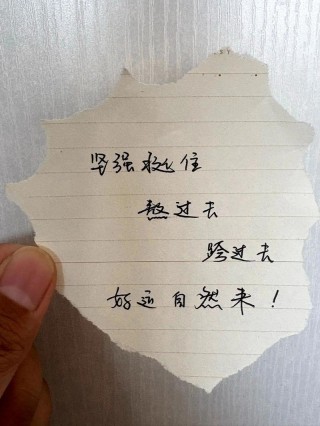 坚强挺住
熬过去
跨过去
好运自然来！